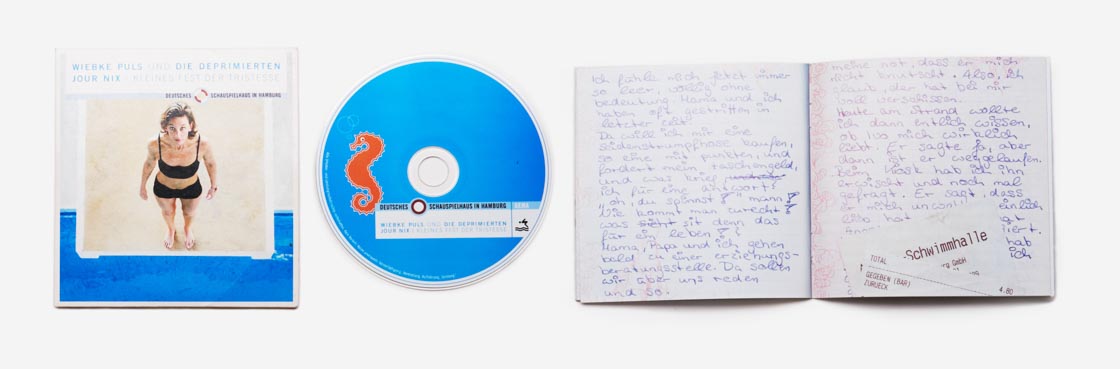 WIEBKE PULS UND DIE DEPRIMIERTEN
JOUR NIX · KLEINES FEST DER TRISTESSE
DEUTSCHES SCHAUSPIELHAUS IN HAMBURG
DEUTSCHES SCHAUSPIELHAUS IN HAMBURG
GEMA
WIEBKE PULS UND DIE DEPRIMIERTEN
JOUR NIX · KLEINES FEST DER TRISTESSE
Ich fühle mich jetzt immer
so leer, völlig ohne
bedeutung. Mama und ich
haben oft gestritten in
letzter zeit.
Da will ich mir eine
seidenstrumpfhose kaufen,
so eine mit punkten, und
fordert mein taschengeld,
und was krieg
ich für eine antwort?
"oh, du spinnst J" mann
Wie kommt man zurecht
was ist denn das
für ein leben??
Mama, Papa und ich gehen
bald zu einer erziehungs-
beratungsstelle. Da sollen
wir aber uns reden
und so.
meine not, dass er mich
nicht knutscht. Also, ich
glaub, der hat bei mir
voll verschissen.
Heute am strand wollte
ich dann entlich wissen,
ob Ivo mich wirklich
liebt. Er sagte ja, aber
dann ist er weggelaufen.
Beim Kiosk hab ich ihn
erwischt und noch mal
gefragt. Er sagt, dass
er mich
lieb hat
hab
ich
Schwimmhalle
GmbH
TOTAL
GEGEBEN (BAR)
ZURUECK
4.80